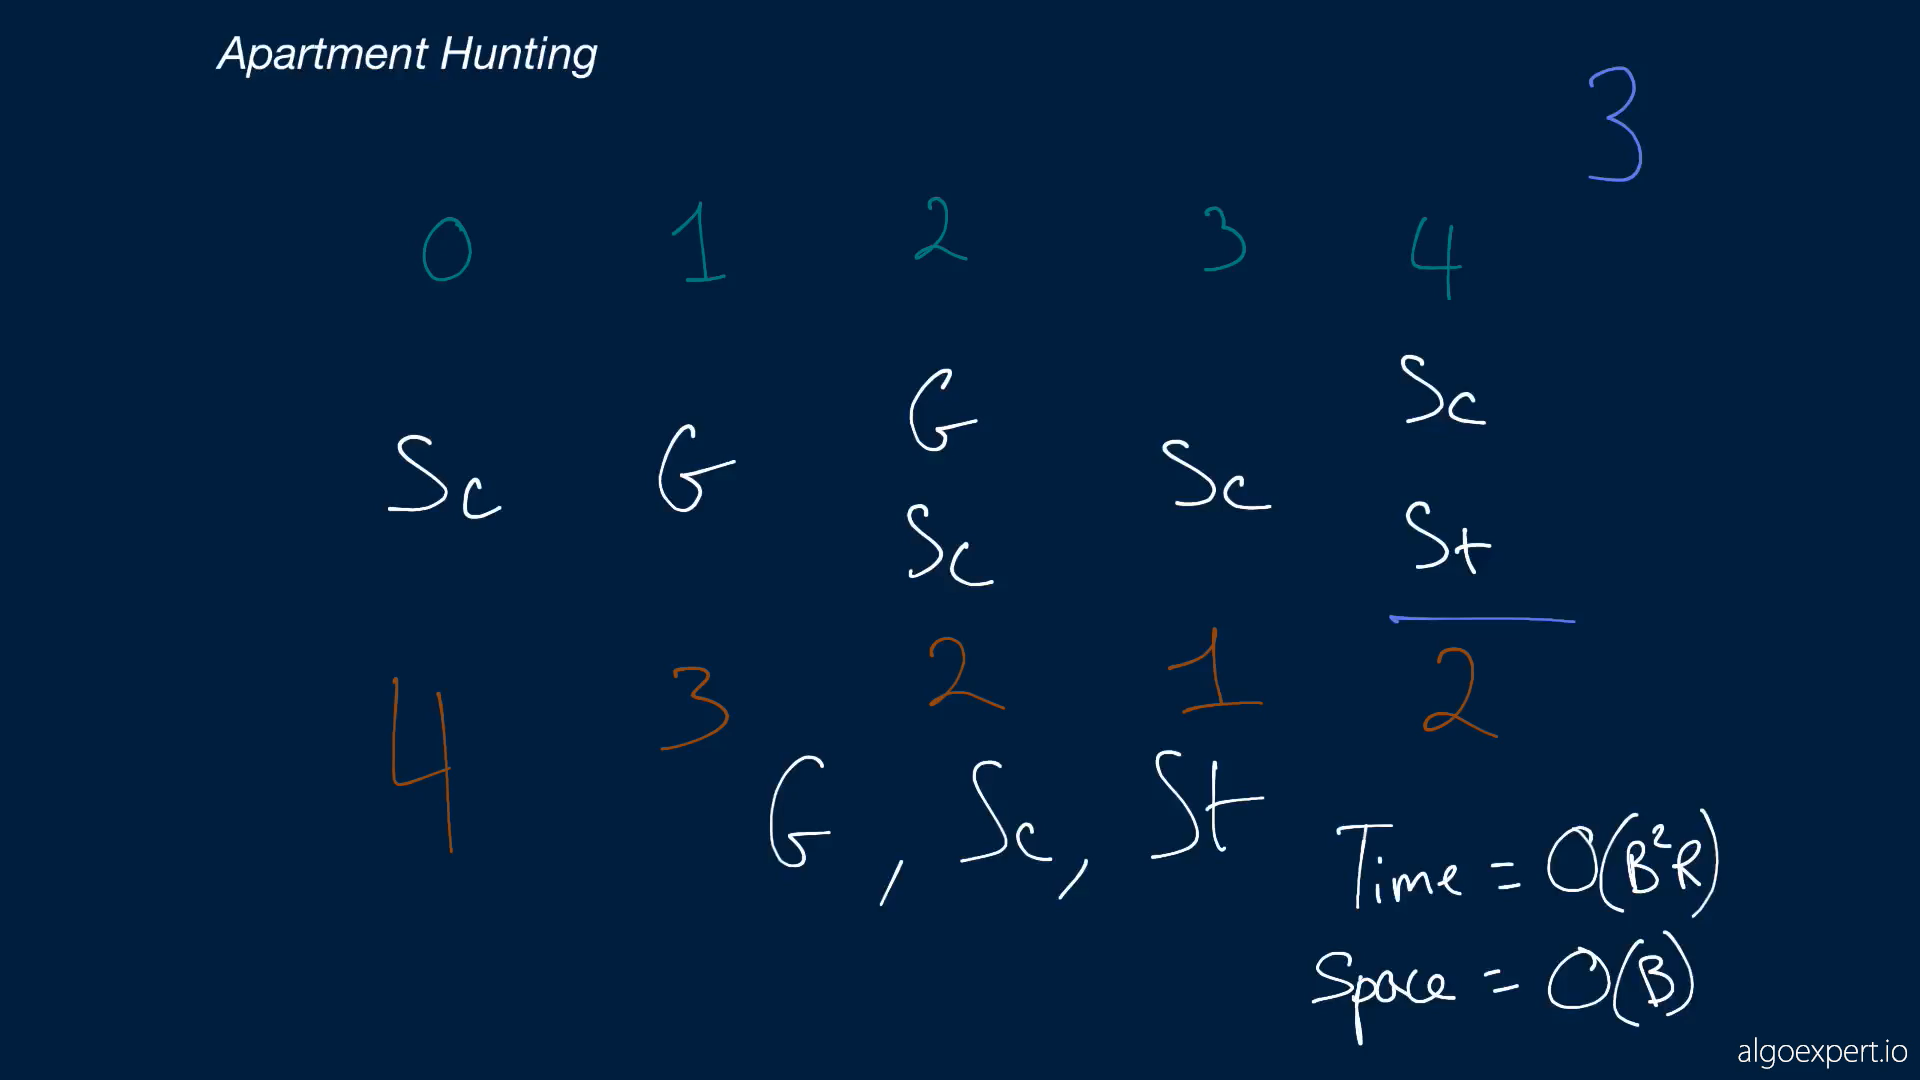 Apartment Hunting
3
0 1 2 3 4
Sc G G Sc Sc
Sc St
4 3 2 1 2
G, Sc, St
Time = O(B²R)
Space = O(B)
algoexpert.io